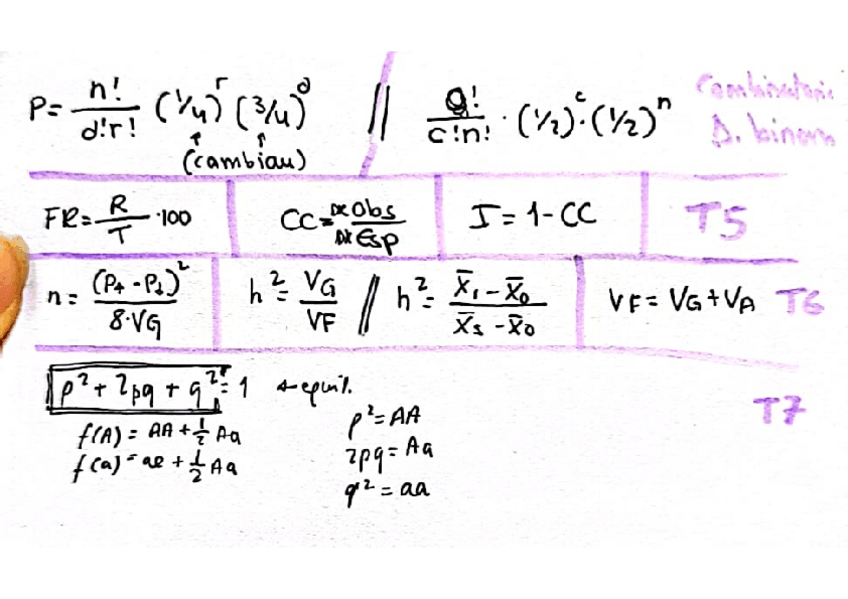 P = n!/d!r! (1/4)^r (3/4)^d // g!/c!n! · (1/2)^c · (1/2)^n
(cambian)
FR = R/T · 100 CC = DR Obs/DR Esp I = 1 - CC T5
n = (P₁ - P₂)²/8·VG h² = VG/VF // h² = X̄₁ - X̄₀/X̄s - X̄₀ VF = VG + VA T6
p² + 2pq + q² = 1 → equil. T7
f(A) = AA + 1/2 Aa
f(a) = aa + 1/2 Aa
p² = AA
2pq = Aa
q² = aa